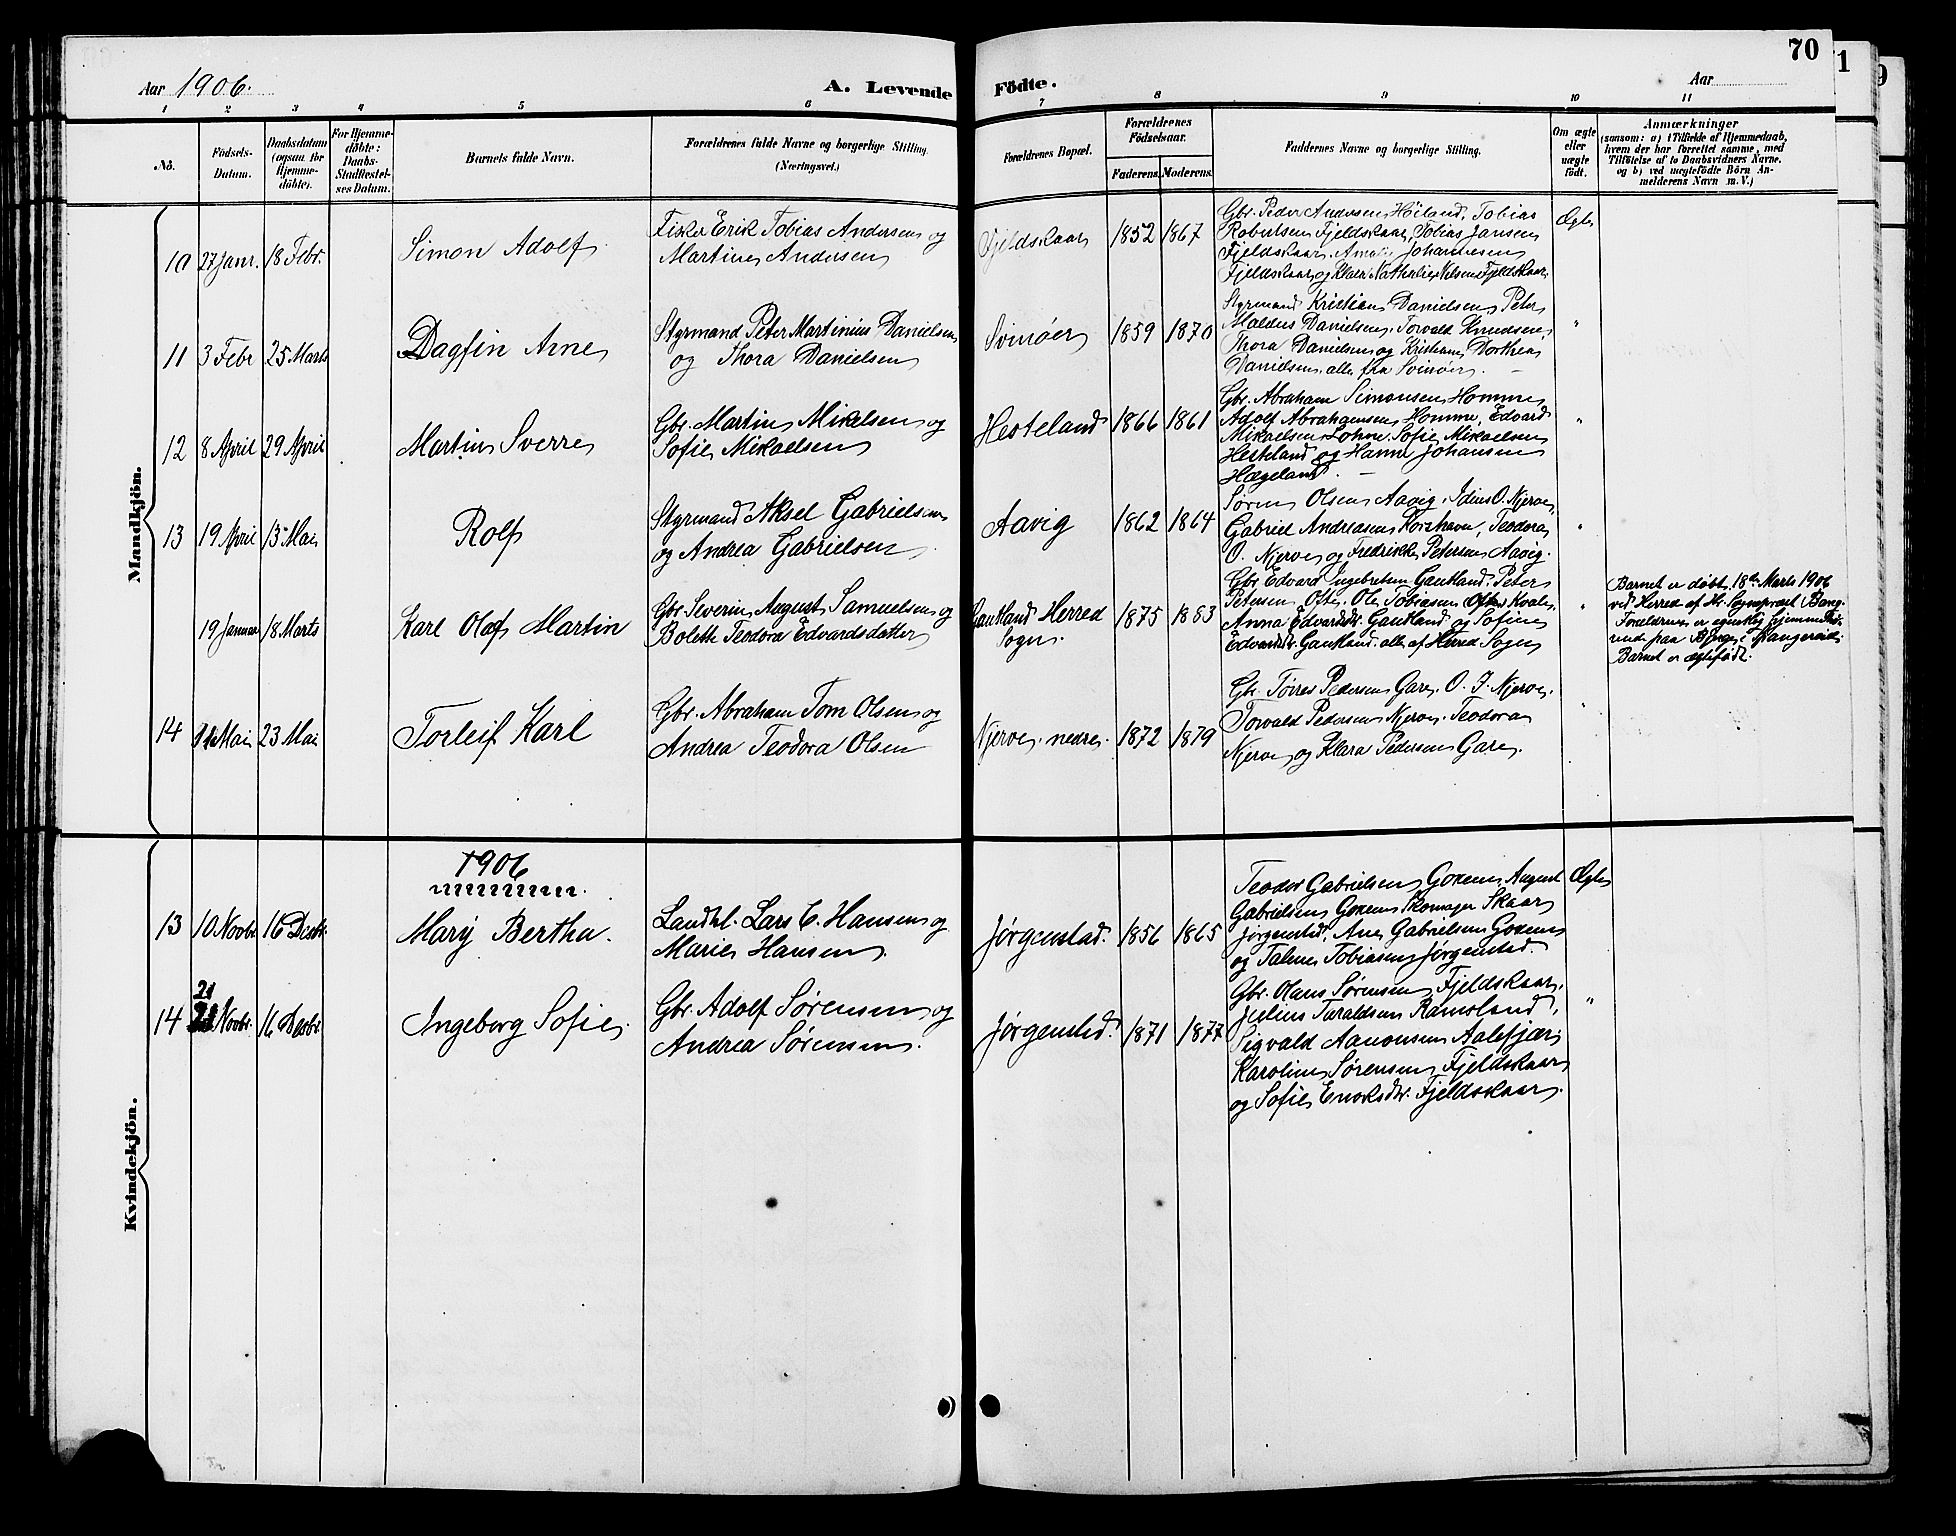 70
Aar 1906.
A. Levende Födte.
Aar
1 2 3 4 5 6 7 8 9 10 11
No.
Födsels-Datum.
Daabsdatum (ogsaa for Hjemme-döbte).
For Hjemme-döbte: Daabs-Stadfestel-ses Datum.
Barnets fulde Navn.
Forældrenes fulde Navne og borgerlige Stilling. (Næringsvei.)
Forældrenes Bopæl.
Forældrenes Födselsaar.
Faderens. Moderens.
Faddernes Navne og borgerlige Stilling.
Om ægte eller uægte födt.
Anmærkninger
(saasom: a) i Tilfælde af Hjemmedaab, hvem der har forrettet samme, med Tilföielse af to Daabsvidners Navne. og b) ved uægtefödte Börn An-melderens Navn m. V.)
Mandkjön.
10 27 Janr. 18 Febr. Simon Adolf
Fisker Erik Tobias Andersen og
Martine Andersen
Fjeldskaar 1852 1867
Gbr. Peder Andersen Höiland, Tobias
Robertsen Fjeldskaar, Tobias Jansen
Fjeldskaar, Amalie Johannesen
Fjeldskaar og Klara Nathalie Nilsen Fjeldskaar
Ægte
11 3 Febr 25 Marts Dagfin Arne
Styrmand Peter Martinius Danielsen
og Thora Danielsen
Svinöer 1859 1870
Styrmand Kristian Danielsen, Peter
Maldus Danielsen, Torvald Knudsen,
Thora Danielsen og Kristiane Dorthea
Danielsen, alle fra Svinöer. —
"
12 8 April 29 April Martin Sverre
Gbr. Martin Mikalsen og
Sofie Mikaelsen
Hesteland 1866 1861
Gbr. Abraham Simonsen Homme
Adolf Abrahamsen Homme, Edvard
Mikaelsen Lohne, Sofie Mikaelsen
Hesteland og Hanne Johansen
Hægeland. —
"
13 19 April 13 Mai Rolf
Styrmand Aksel Gabrielsen
og Andrea Gabrielsen
Aavig 1862 1864
Sören Olsen Aavig, Idius O. Njerve,
Gabriel Andreasen Korshavn, Teodora
O. Njerve og Fredrikke Petersen Aavig.
"
19 Januar 18 Marts Karl Olaf Martin
Gbr. Severin August Samuelsen og
Bolette Teodora Edvardsdatter
Gautland Herred
Sogn.
1875 1883
Gbr. Edvard Ingebretsen Gautland, Peter
Petersen Ofte, Ole Tobiasen Ofte Kvale,
Anna Edvardsdr. Gautland og Sofine
Edvardsdr. Gautland. alle af Herred Sogn
"
Barnet er døbt 18de Marts 1906
ved Herred af Hr. Sogneprest Bang.
Foreldrene er egentlig hjemmehö-
rende paa Bjerge i Spangereid.
Barnet er ægtefödt.
14 Mai 23 Mai Torleif Karl
Gbr. Abraham Tom Olsen og
Andrea Teodora Olsen
Njerve nedre. 1872 1879
Gbr. Törres Pedersen Gare, O. J. Njerve.
Torvald Pedersen Njerve, Teodora
Njerve og Klara Pedersen Gare.
"
Kvindekjön.
1906
13 10 Novbr 16 Decbr. Mary Bertha.
Landhl. Lars C. Hansen og
Marie Hansen
Jørgenstad. 1856 1865
Teodor Gabrielsen Goxem August
Gabrielsen Goxem Skomager Skaar
Jørgensted, Ane Gabrielsen Goxem
og Talene Tobiasen Jørgensted.
Ægte
21
14 Novbr. 16 Decbr Ingeborg Sofie.
Gbr. Adolf Sørensen og
Andrea Sørensen.
Jørgensted 1871 1877
Gbr. Olaus Sørensen Fjeldskaar,
Julius Taraldsen Ramsland,
Sigvald Aanonsen Aalefjær,
Karoline Sørensen Fjeldskaar
og Sofie Enoksdr. Fjeldskaar.
"